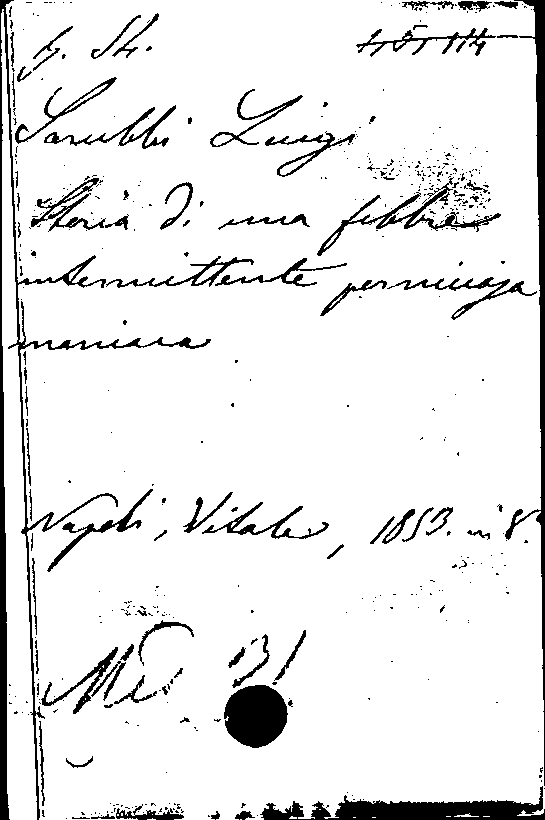 Sarubbi Luigi
Storia di una febbre
intermittente perniciosa
maniaca
Napoli, Vitale, 1853. in 8.°